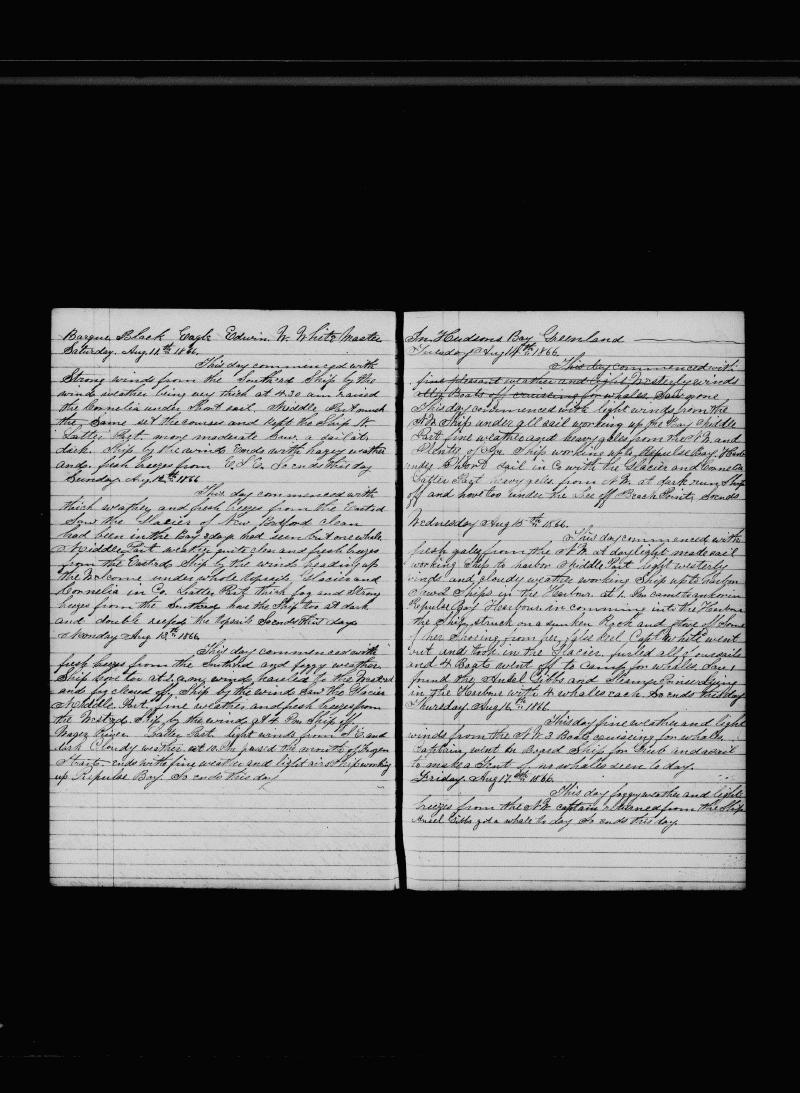 Barque Black Eagle Edwin W. White Master
Saturday. Aug 11th 1866
This day commenced with
Strong winds from the Southard Ship by the
wind weather being very thick at 4.30 am raised
the Cornelia under Short sail. Middle Part much
the Same set the courses and kept the Ship
Latter Part more moderate Saw a sail at
dark. Ship by the wind Ends with hazy weather
and fresh breezes from E.S.E. So ends this day
Sunday Aug 12th 1866
This day commenced with
thick weather and fresh breezes from the Eastrd
Saw the Glacier of New Bedford clean
had been in the Bay 3 days had seen but one whale
Middle Part weather quite clear and fresh breezes
from the Eastrd Ship by the wind heading up
the Welcome under whole topsails Glacier and
Cornelia in Co. Latter Part thick fog and Strong
breeze from the Southrd have the Ship too at dark
and double reefed the topsails So ends this day
Monday Aug 13th 1866
This day commenced with
fresh breezes from the Southrd and foggy weather
Ship hove too at 1 a.m. wind hauled to the Westrd
and fog cleared off. Ship by the wind Saw the Glacier
Middle Part fine weather and fresh breezes from
the Westrd Ship by the wind at 4 Pm Ship off
Wager River Latter Part light winds from S.E. and
dark Cloudy weather at 10 Pm passed the mouth of Frozen
Straits ends with fine weather and light airs Ship working
up Repulse Bay. So ends this day
In Hudsons Bay Greenland
Tuesday Aug 14th 1866
This day commenced with
fine pleasant weather and light Westerly winds
all Boats off cruising for whales Saw none
This day commenced with light winds from the
N.W. Ship under all sail working up the Bay Middle
Part fine weather and heavy gales from the N.W. and
Plenty of Ice Ship working up to Repulse Bay
under Short Sail in Co with the Glacier and Cornelia
Latter Part heavy gales from N.W. at dark run Ship
off and hove too under the Lee off Beach Point So ends
Wednesday Aug 15th 1866.
This day commenced with
fresh gales from the N.W. at daylight made sail
working Ship to harbor Middle Part light westerly
winds and cloudy weather working Ship up to harbor
Saw 2 Ships in the Harbour at 1 Pm came to anchor in
Repulse Bay Harbour in comming into the Harbour
the Ship Struck on a sunken Rock and Stove off Some
of her Shoeing from her false keel Capt White went
out and took in the Glacier furled all of our sails
and 4 Boats went off to Camp for whales
found the Ansel Gibbs and Glacier lying
in the Harbour with 4 whales each So ends this day
Thursday Aug 16th 1866
This day fine weather and light
winds from the N.W. 3 Boats cruising for whales
Captain went on Board Ship for Grub and a sail
to make a Tent of no whales seen to day.
Friday. Aug 17th 1866
This day foggy weather and light
breezes from the N.W. captain returned from the Ship
Ansel Gibbs got a whale to day So ends this day